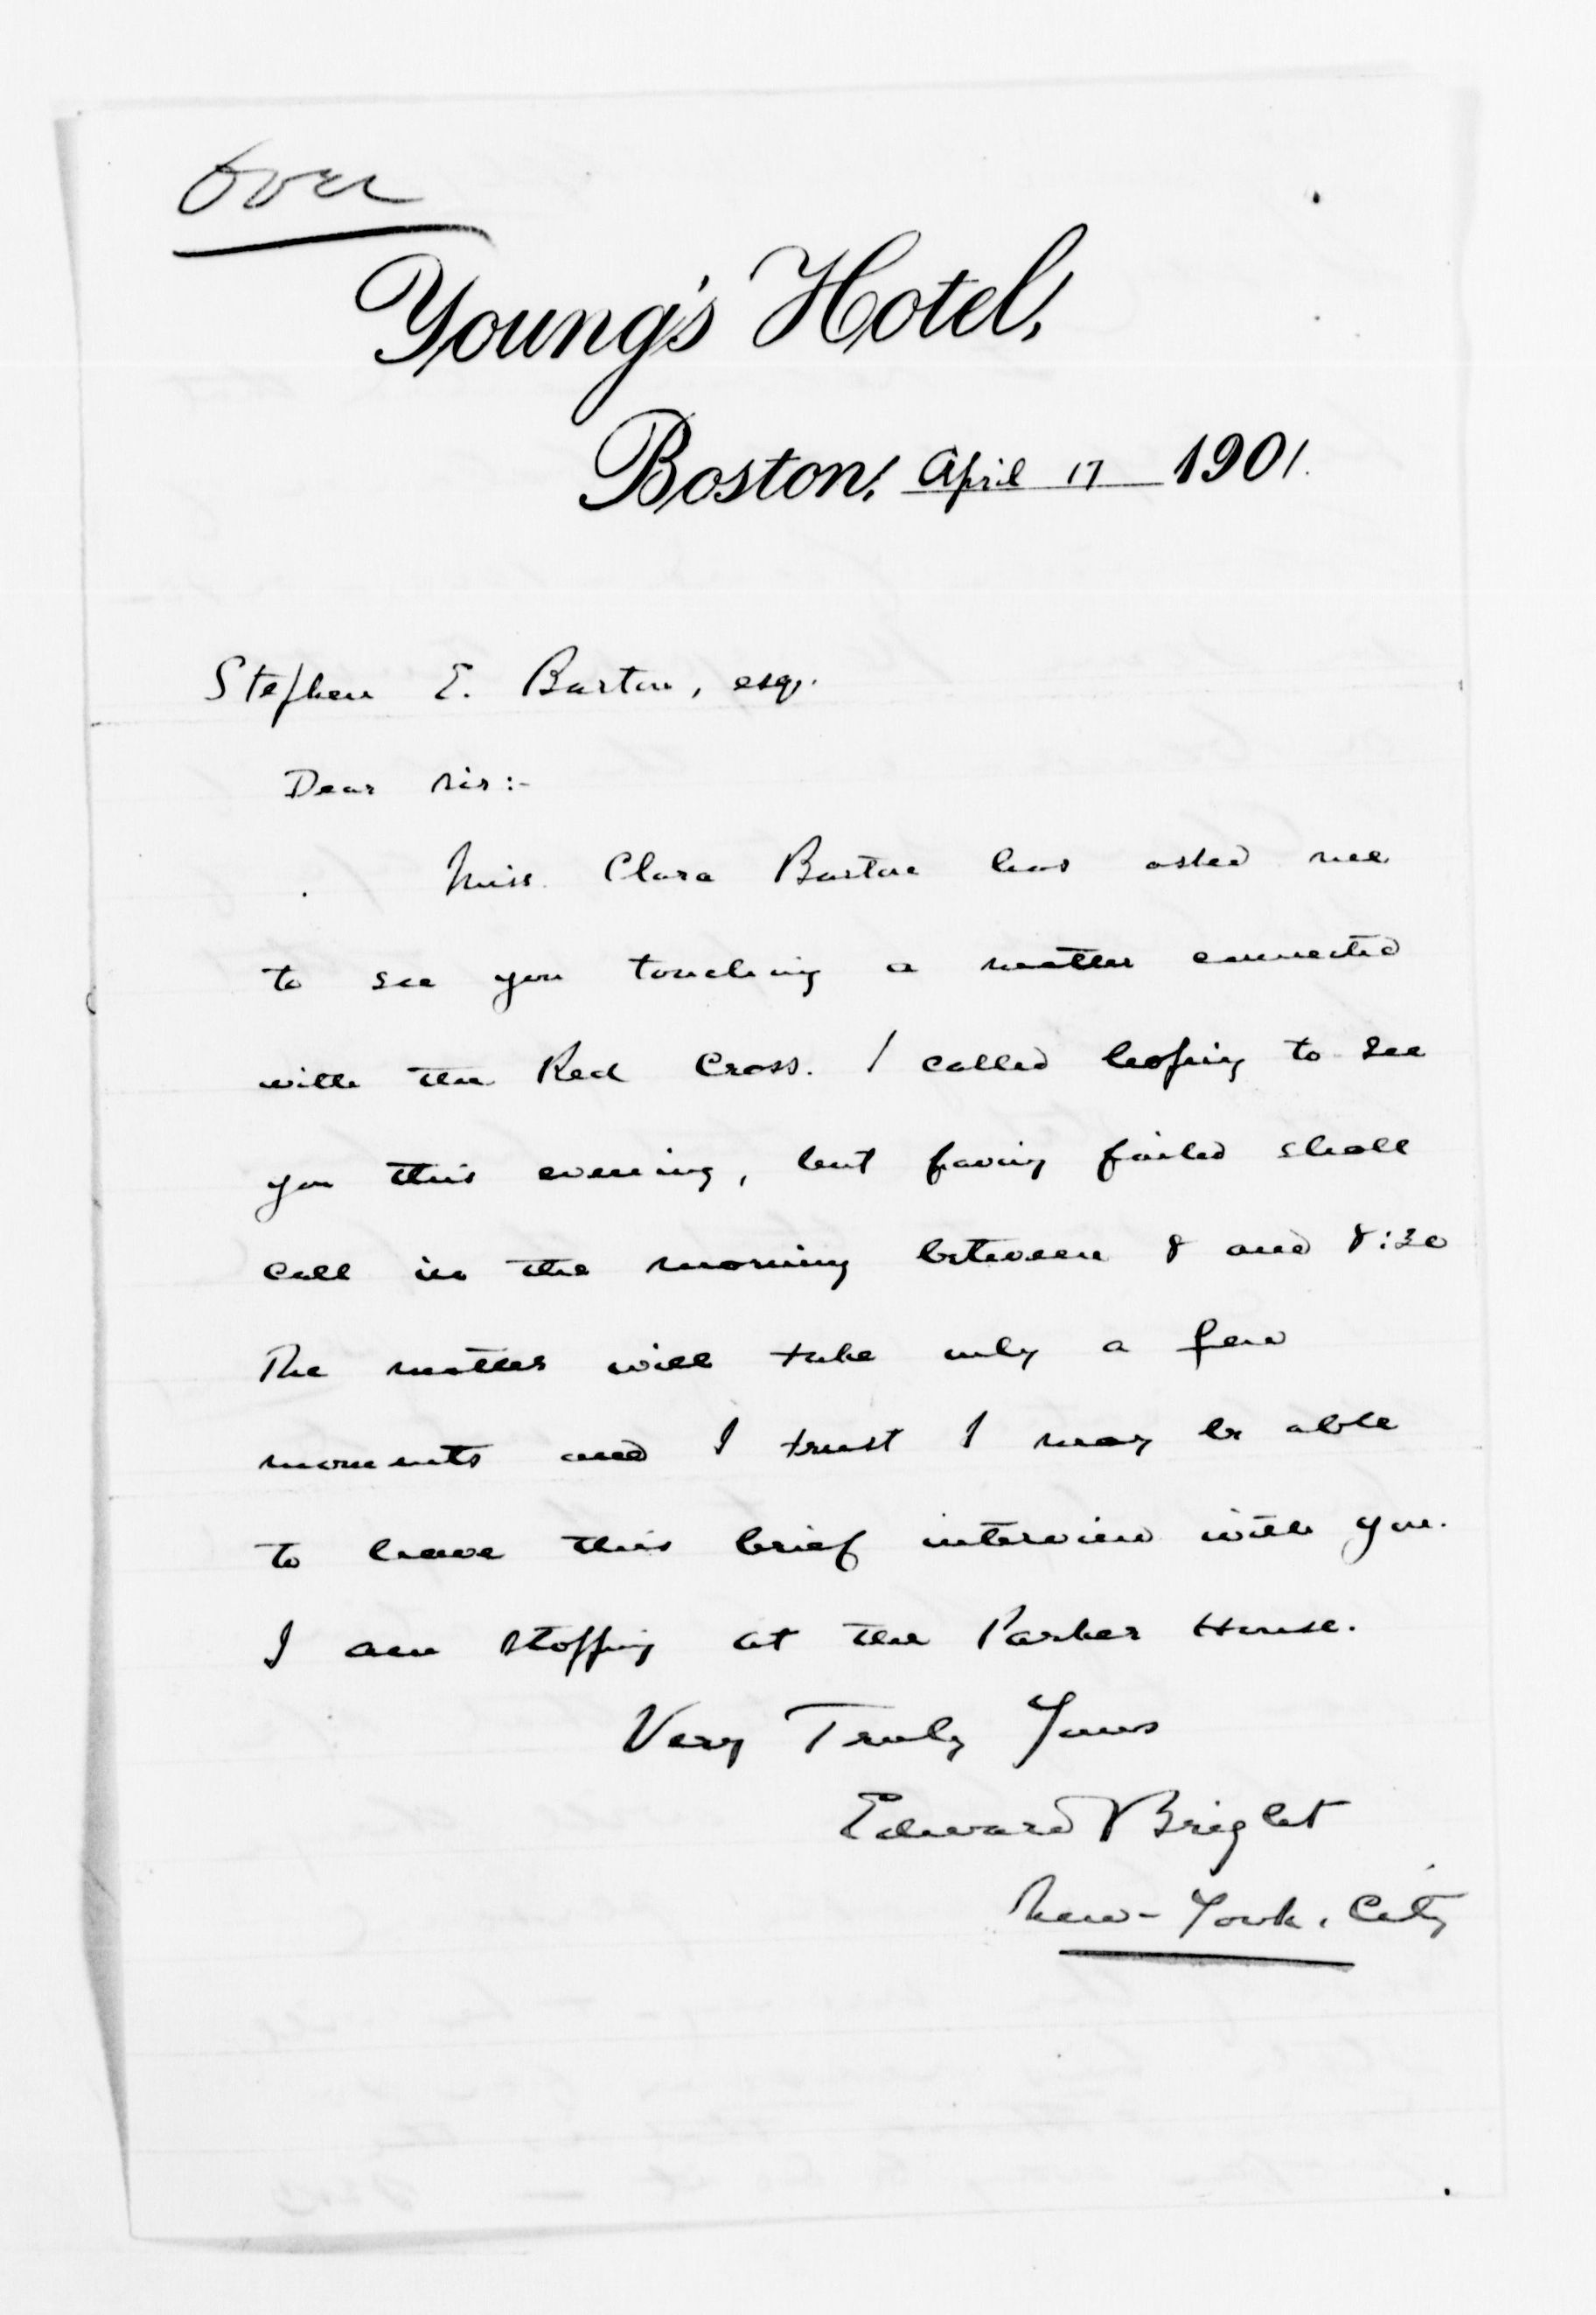 Over
Young's Hotel,
Boston, April 17 1901.
Stephen E. Barton, esq.
Dear Sir:-
Miss Clara Barton has asked me
to see you touching a matter connected
with the Red Cross. I called hoping to see
you this evening, but having failed shall
call in the morning between 8 and 8:30
The matter will take only a few
moments and I trust I may be able
to have this brief interview with you.
I am stopping at the Parker House.
Very Truly Yours
Edward Bright
New-York, City